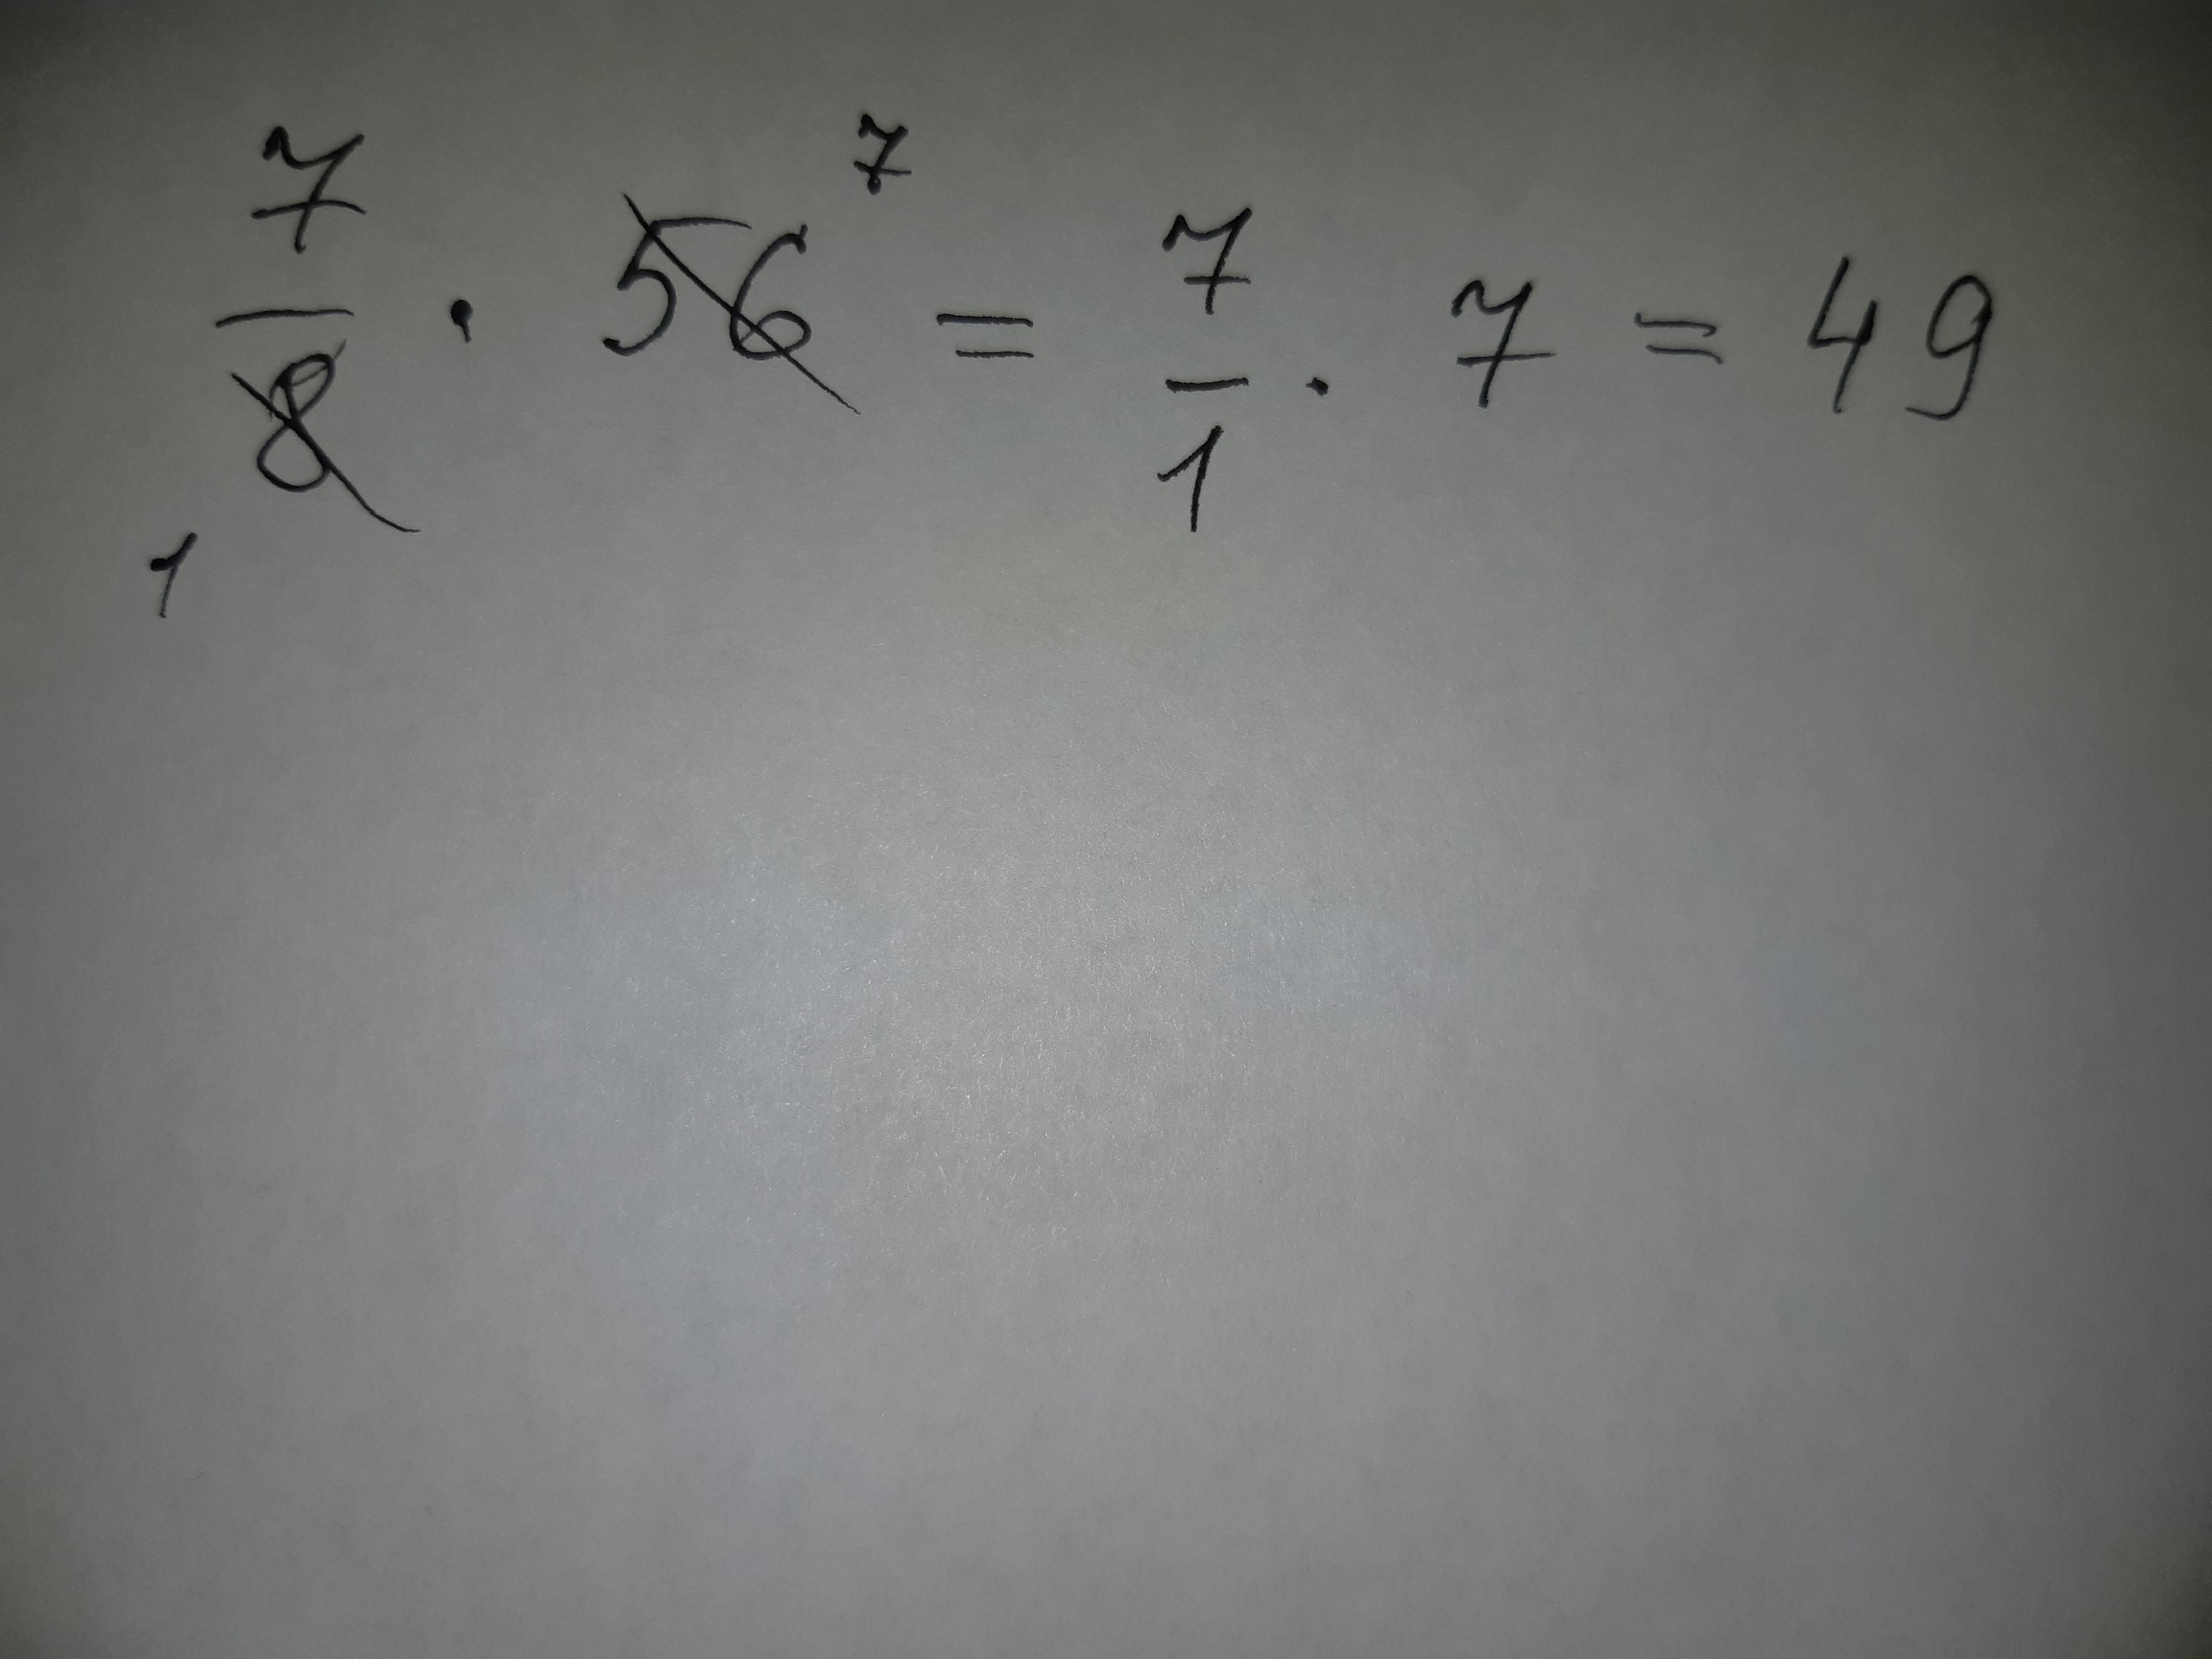 7/8 · 56 7 = 7/1 · 7 = 49
1